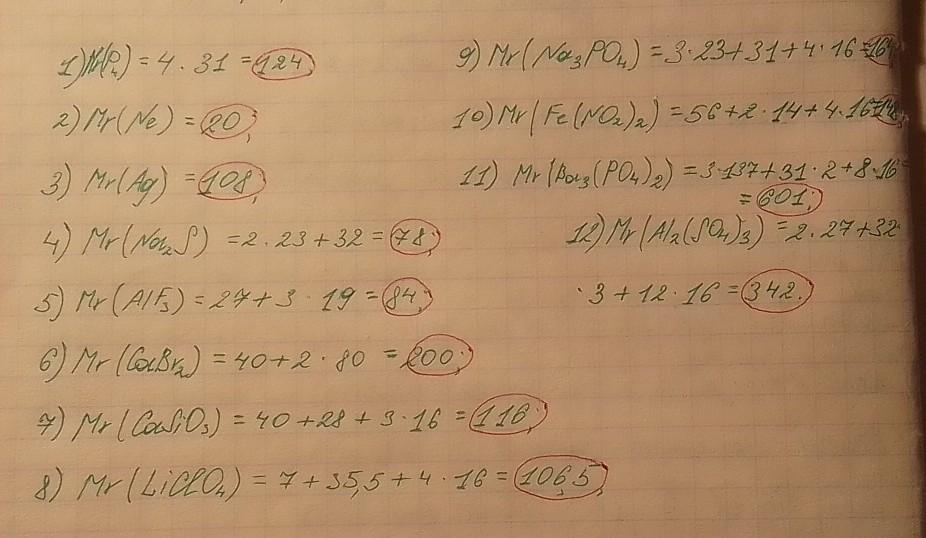 1) Mr(P₄) = 4 · 31 = 124;
2) Mr(Ne) = 20;
3) Mr(Ag) = 108;
4) Mr(Na₂S) = 2 · 23 + 32 = 78;
5) Mr(AlF₃) = 27 + 3 · 19 = 84;
6) Mr(CaBr₂) = 40 + 2 · 80 = 200;
7) Mr(CaSiO₃) = 40 + 28 + 3 · 16 = 116;
8) Mr(LiClO₄) = 7 + 35,5 + 4 · 16 = 106,5;
9) Mr(Na₃PO₄) = 3 · 23 + 31 + 4 · 16 = 164
10) Mr(Fe(NO₂)₂) = 56 + 2 · 14 + 4 · 16 = 148;
11) Mr(Ba₃(PO₄)₂) = 3 · 137 + 31 · 2 + 8 · 16
= 601;
12) Mr(Al₂(SO₄)₃) = 2 · 27 + 32
· 3 + 12 · 16 = 342.